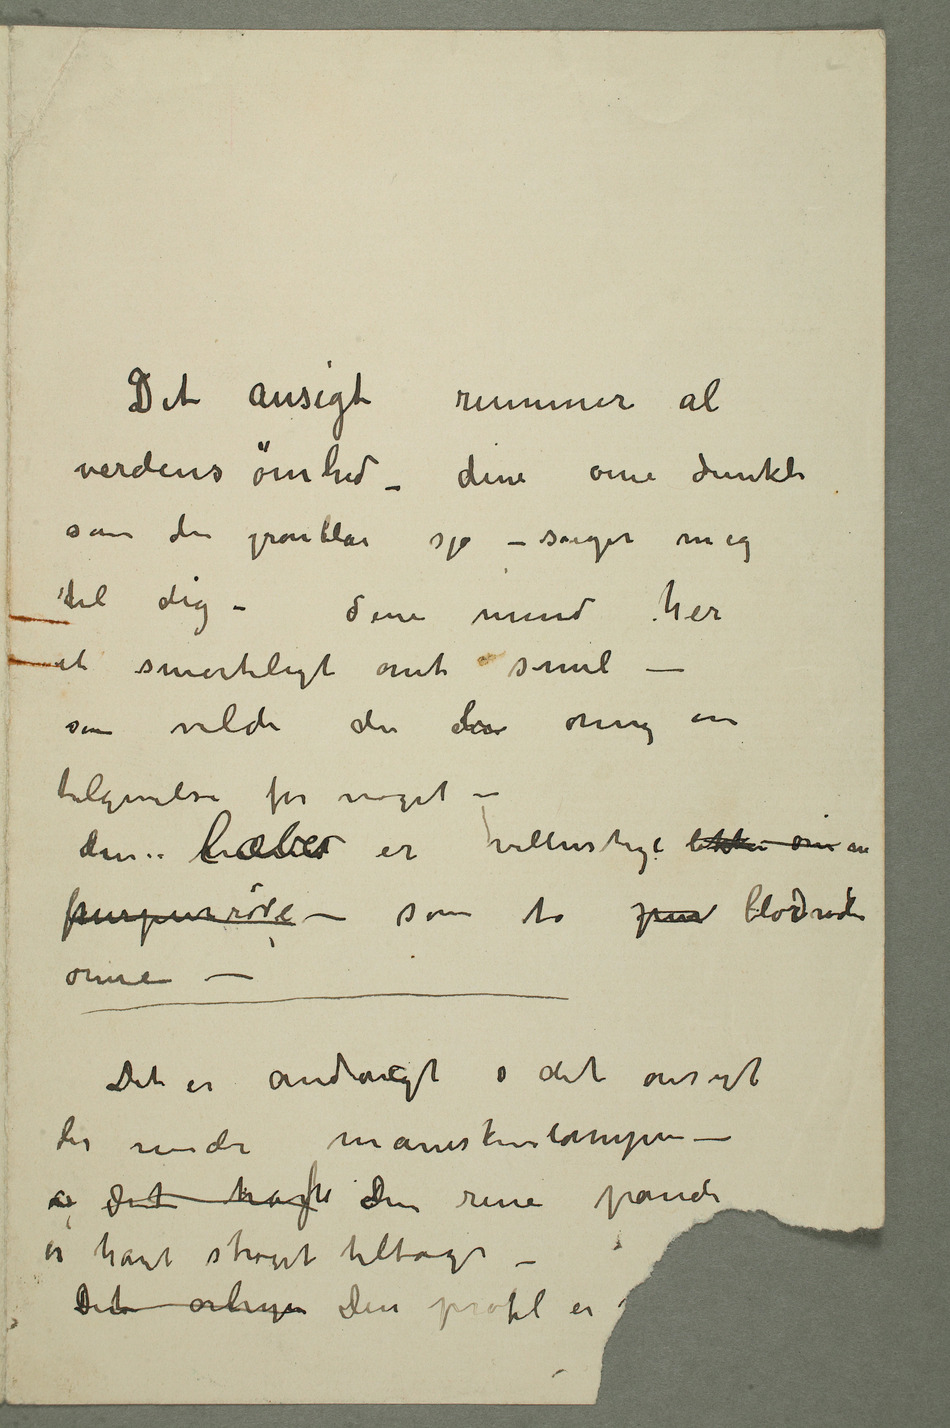 Dit ansigt rummer al
verdens ömhed – dine öine dunkle
som den grønblåe sjø – suger mig
til dig – Dine mund har
et smerteligt ømt smil –
som vilde du du om
tilgivelse for noget –
dine læber er vellystige en
purpurrøde – som to blodrøde
orme –
Det er andagt i dit ansigt
der under måneskinslampen –
af dit hår Din rene pande
er håret strøget tilbage –
Dit Din profil er